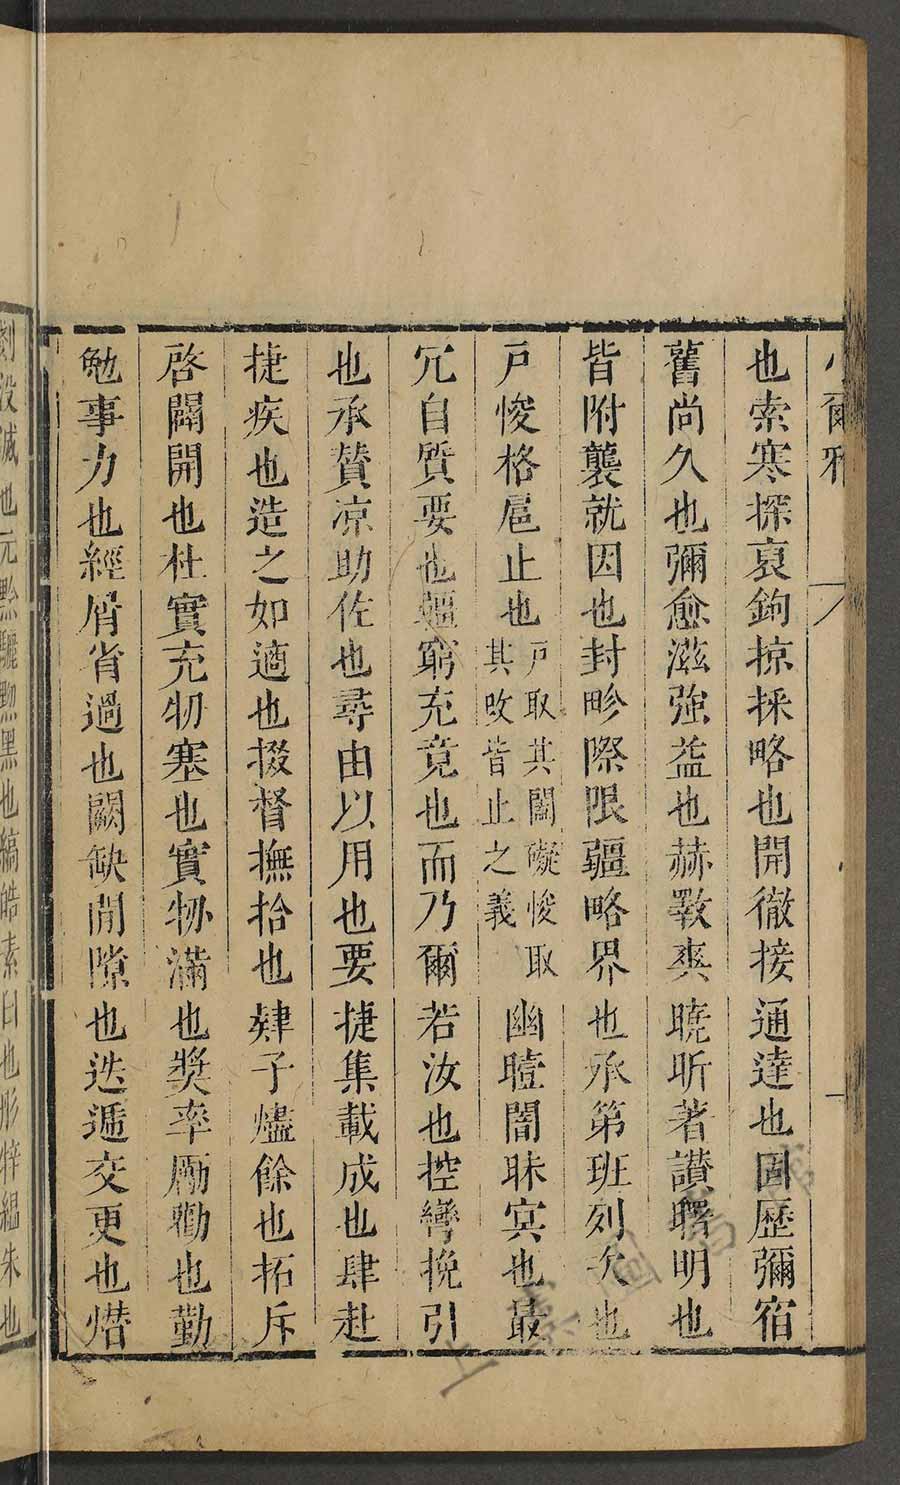 小爾雅
也索寒探裒鉤掠採略也開徹接通達也固歷彌宿
舊尚久也彌愈滋強益也赫斁爽曉昕著讃曙明也
皆附襲就因也封畛際限疆略界也承第班列次也
戸悛格扈止也戸取其闔礙悛取其改皆止之義幽曀闇昧冥也最
冗自質要也疆窮充竟也而乃爾若汝也控彎挽引
也承贊凉助佐也尋由以用也要捷集載成也肆赴
捷疾也造之如適也掇督撫拾也肄孑燼餘也拓斥
啓闢開也杜實充牣塞也實牣滿也獎率厲勸也勤
勉事力也經屑省過也闕缺間隙也迭遞交更也熸
剗没滅也元黔驪黝黑也縞皓素白也彤牸緼朱也
上海圖書館